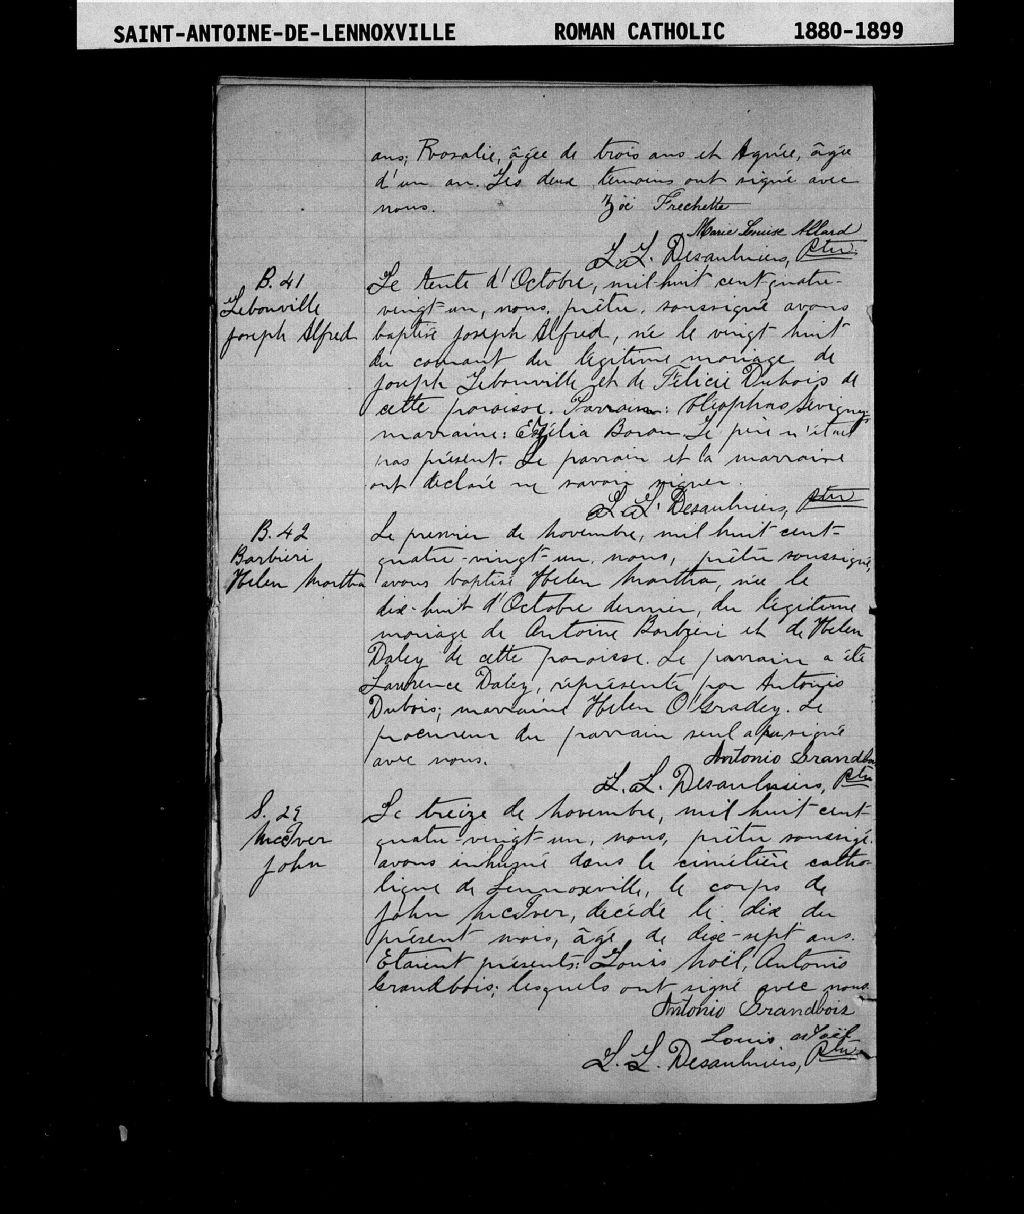 SAINT-ANTOINE-DE-LENNOXVILLE ROMAN CATHOLIC 1880-1899
ans; Rosalie, âgée de trois ans et Agnée, âgée
d'un an. Les deux temoins ont signé avec
nous. Zoë Frechette
Marie Louise Allard
L. L. Desaulniers, Ptre
B. 41
Lebouville
Joseph Alfred
Le trente d'Octobre, mil-huit cent quatre-
vingt-un, nous, prêtre, soussigné avons
baptisé Joseph Alfred, né le vingt huit
du courant du légitime mariage de
Joseph Lebouville et de Félicie Dubois de
cette paroisse. Parrain: Cléophas Sévigny
marraine: Exélia Le père n'était
pas présent. Le parrain et la marraine
ont déclaré ne savoir signer.
L. L. Desaulniers, Ptre
B. 42
Barbieri
Helen Martha
Le premier de Novembre, mil huit cent-
quatre-vingt-un, nous, prêtre soussigné,
avons baptisé Helen Martha, née le
dix-huit d'Octobre dernier, du légitime
mariage de Antoine Barbieri et de Helen
Daley de cette paroisse. Le parrain a été
Lawrence Daley, représenté par Antonio
Dubois; marraine Helen O'Gradey. Le
procureur du parrain seul a signé
avec nous. Antonio Grandbois
L. L. Desaulniers, Ptre
S. 29
McIver
John
Le treize de Novembre, mil huit cent
quatre-vingt-un, nous, prêtre soussigné
avons inhumé dans le cimetière catho-
lique de Lennoxville, le corps de
John McIver, décédé le dix du
présent mois, âgé de dix-sept ans.
Etaient présents: Louis Noël, Antonio
Grandbois; lesquels ont signé avec nous
Antonio Grandbois
Louis Noël
L. L. Desaulniers, Ptre